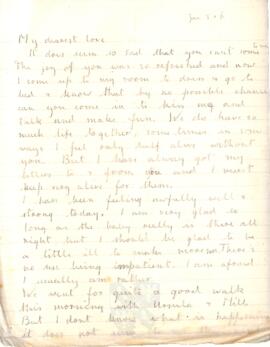 My dearest love
It does seem so sad that you can't come
The joy of you was so refreshed and now
I come up to my room to down & go to
bed & know that by no possible chance
can you come in to kiss me and
talk and make fun. We do have so
much life together, some times in some
ways I feel only half alive without
you. But I have always got my
letters to & from you and I must
keep very alive for them.
I have been feeling awfully well &
strong today. I am very glad so
long as the baby really is there all
right but I should be glad to
be a little all to make There's
no use being impatient. I am afraid
I usually am rather.
We went for quite a good walk
this morning with Ursula &
But I dont know what is happening
it does not seem to